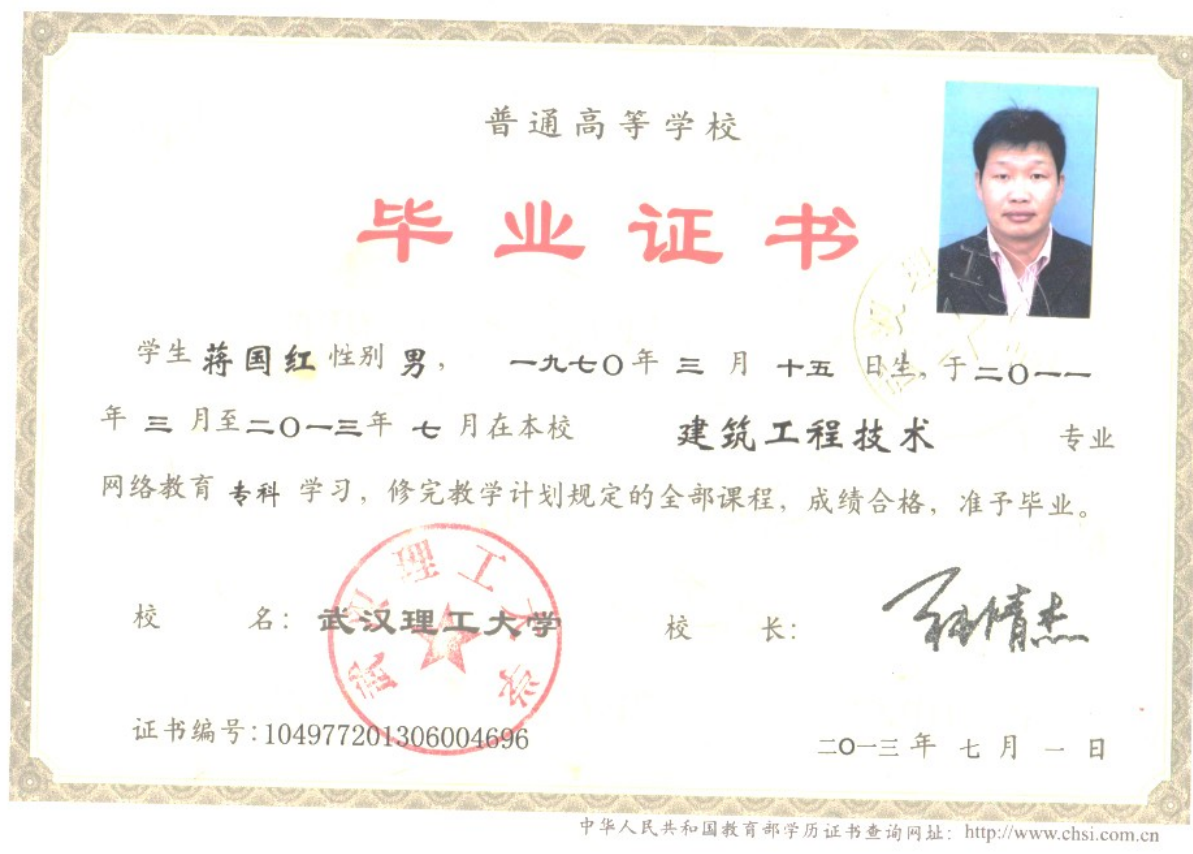 普通高等学校
毕业证书
学生 蒋国红 性别 男， 一九七〇年 三 月 十五 日生，于二〇一一
年 三 月至二〇一三年 七 月在本校 建筑工程技术 专业
网络教育 专科 学习，修完教学计划规定的全部课程，成绩合格，准予毕业。
校 名：武汉理工大学 校 长：
武汉理工大学
证书编号：104977201306004696 二〇一三年 七 月 一 日
中华人民共和国教育部学历证书查询网址：http://www.chsi.com.cn